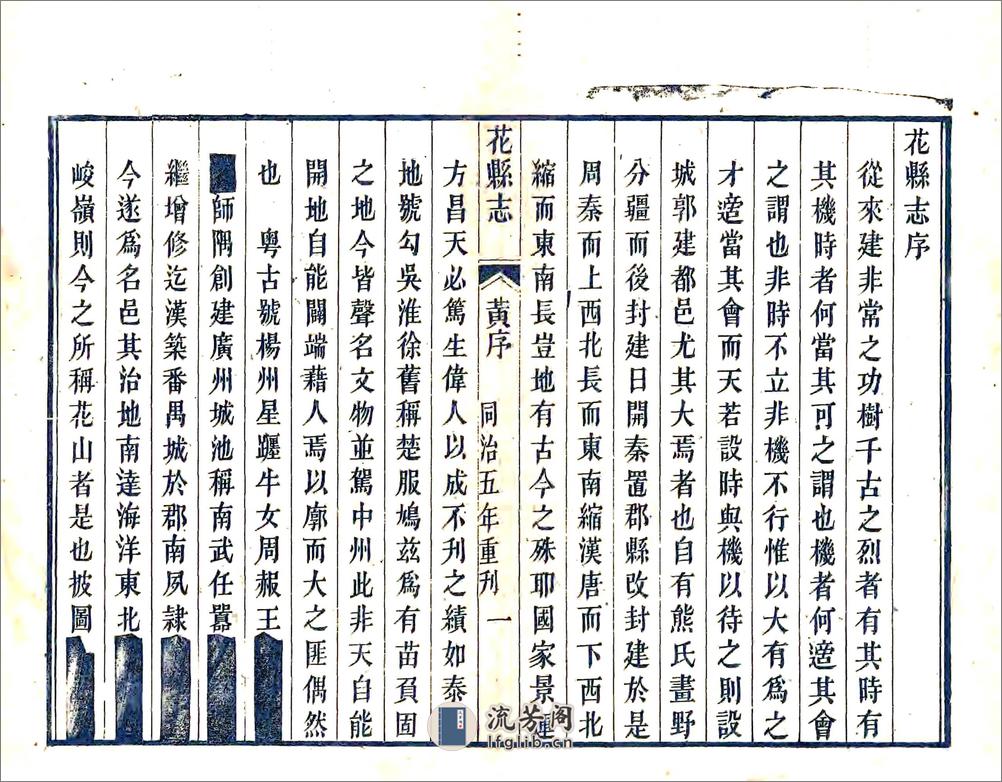 花縣志序
從來建非常之功樹千古之烈者有其時有
其機時者何當其可之謂也機者何適其會
之謂也非時不立非機不行惟以大有爲之
才適當其會而天若設時與機以待之則設
城郭建都邑尤其大焉者也自有熊氏畫野
分疆而後封建日開秦置郡縣改封建於是
周秦而上西北長而東南縮漢唐而下西北
縮而東南長豈地有古今之殊耶國家景運
花縣志 黃序 同治五年重刋 一
方昌天必篤生偉人以成不刋之績如泰
地號勾吳淮徐舊稱楚服鳩兹爲有苗負固
之地今皆聲名文物並駕中州此非天自能
開地自能闢端藉人焉以廓而大之匪偶然
也 粵古號楊州星躔牛女周赧王
師隅創建廣州城池稱南武任囂
繼增修迄漢築番禺城於郡南夙隷
今遂爲名邑其治地南達海洋東北
峻嶺則今之所稱花山者是也披圖
流芳阁
lfglib.cn